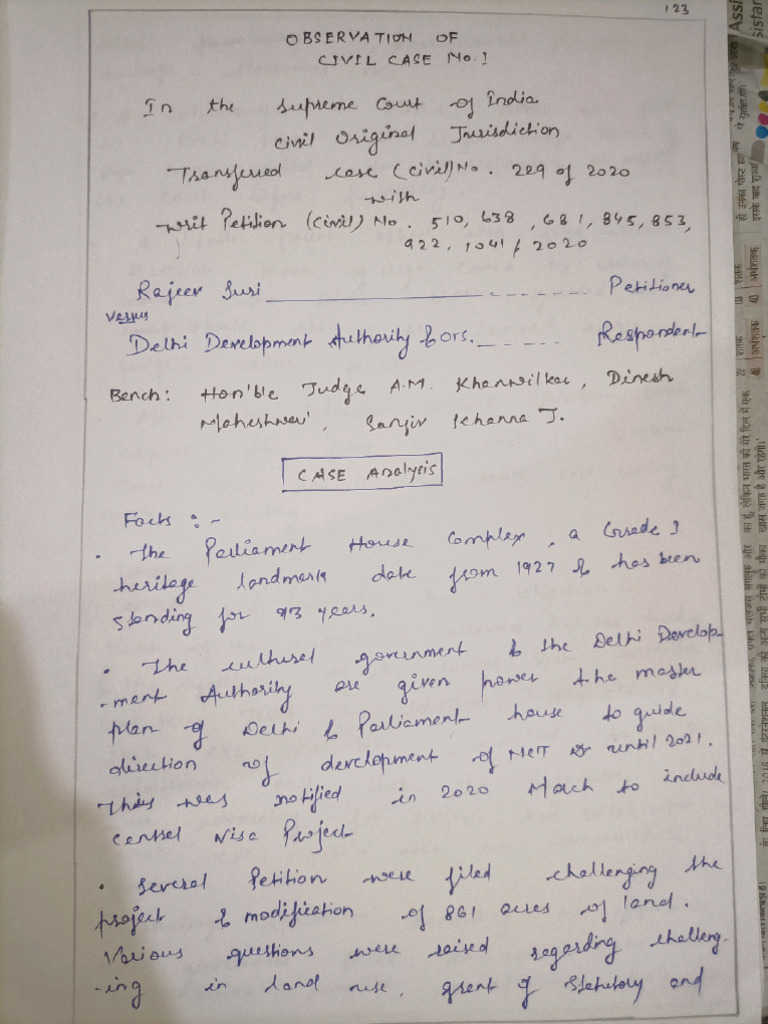 123
OBSERVATION OF
CIVIL CASE No. 1
In the Supreme Court of India
Civil Original Jurisdiction
Transferred case (civil) No. 229 of 2020
with
writ Petition (civil) No. 510, 638, 681, 845, 853,
922, 1041/2020
Rajeev Suri ------ Petitioner
Versus
Delhi Development Authority & ors. ------ Respondent
Bench: Hon'ble Judge A.M. Khanwilkar, Dinesh
Maheshwari, Sanjiv Khanna J.
CASE Analysis
Facts :-
• The Parliament House Complex, a Grade I
heritage landmark date from 1927 & has been
standing for 93 years.
• The cultural government & the Delhi Develop
-ment Authority are given power the master
plan of Delhi & Parliament house to guide
direction of development of NCT until 2021.
This was notified in 2020 March to include
central Visa Project
• Several Petition were filed challenging the
project & modification of 861 acres of land.
Various questions were raised regarding challeng-
-ing in land use, grant of statutory and